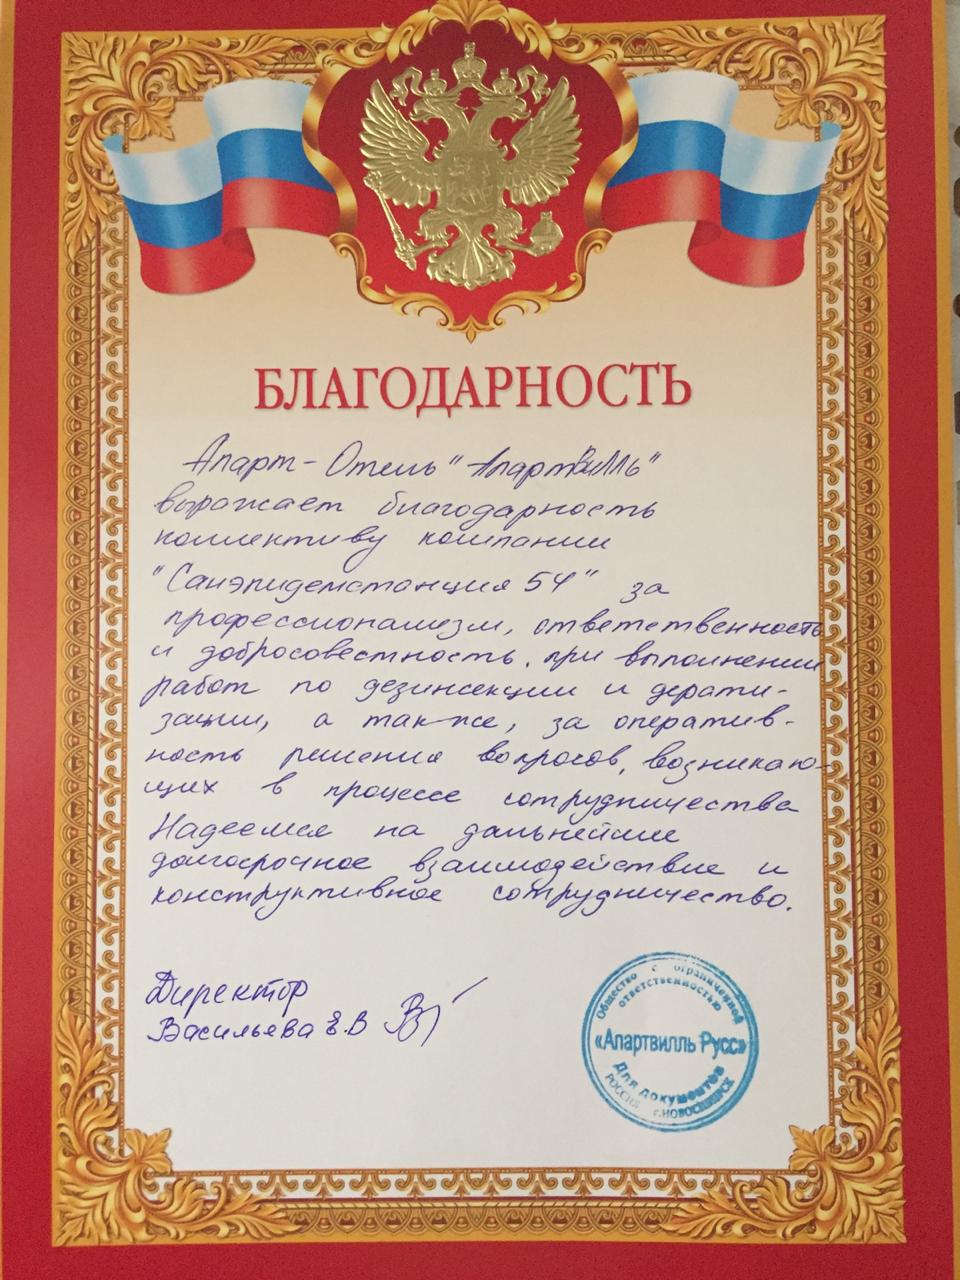 БЛАГОДАРНОСТЬ
Апарт-Отель "Апартвилль"
выражает благодарность
коллективу компании
"Санэпидемстанция 54" за
профессионализм, ответственность
и добросовестность, при выполнении
работ по дезинсекции и дерати-
зации, а также, за оператив-
ность решения вопросов, возникаю-
щих в процессе сотрудничества
Надеемся на дальнейшее
долгосрочное взаимодействие и
конструктивное сотрудничество.
Директор
Васильева Е.В
Общество с ограниченной
ответственностью
«Апартвилль Русс»
Для документов
РОССИЯ г.НОВОСИБИРСК